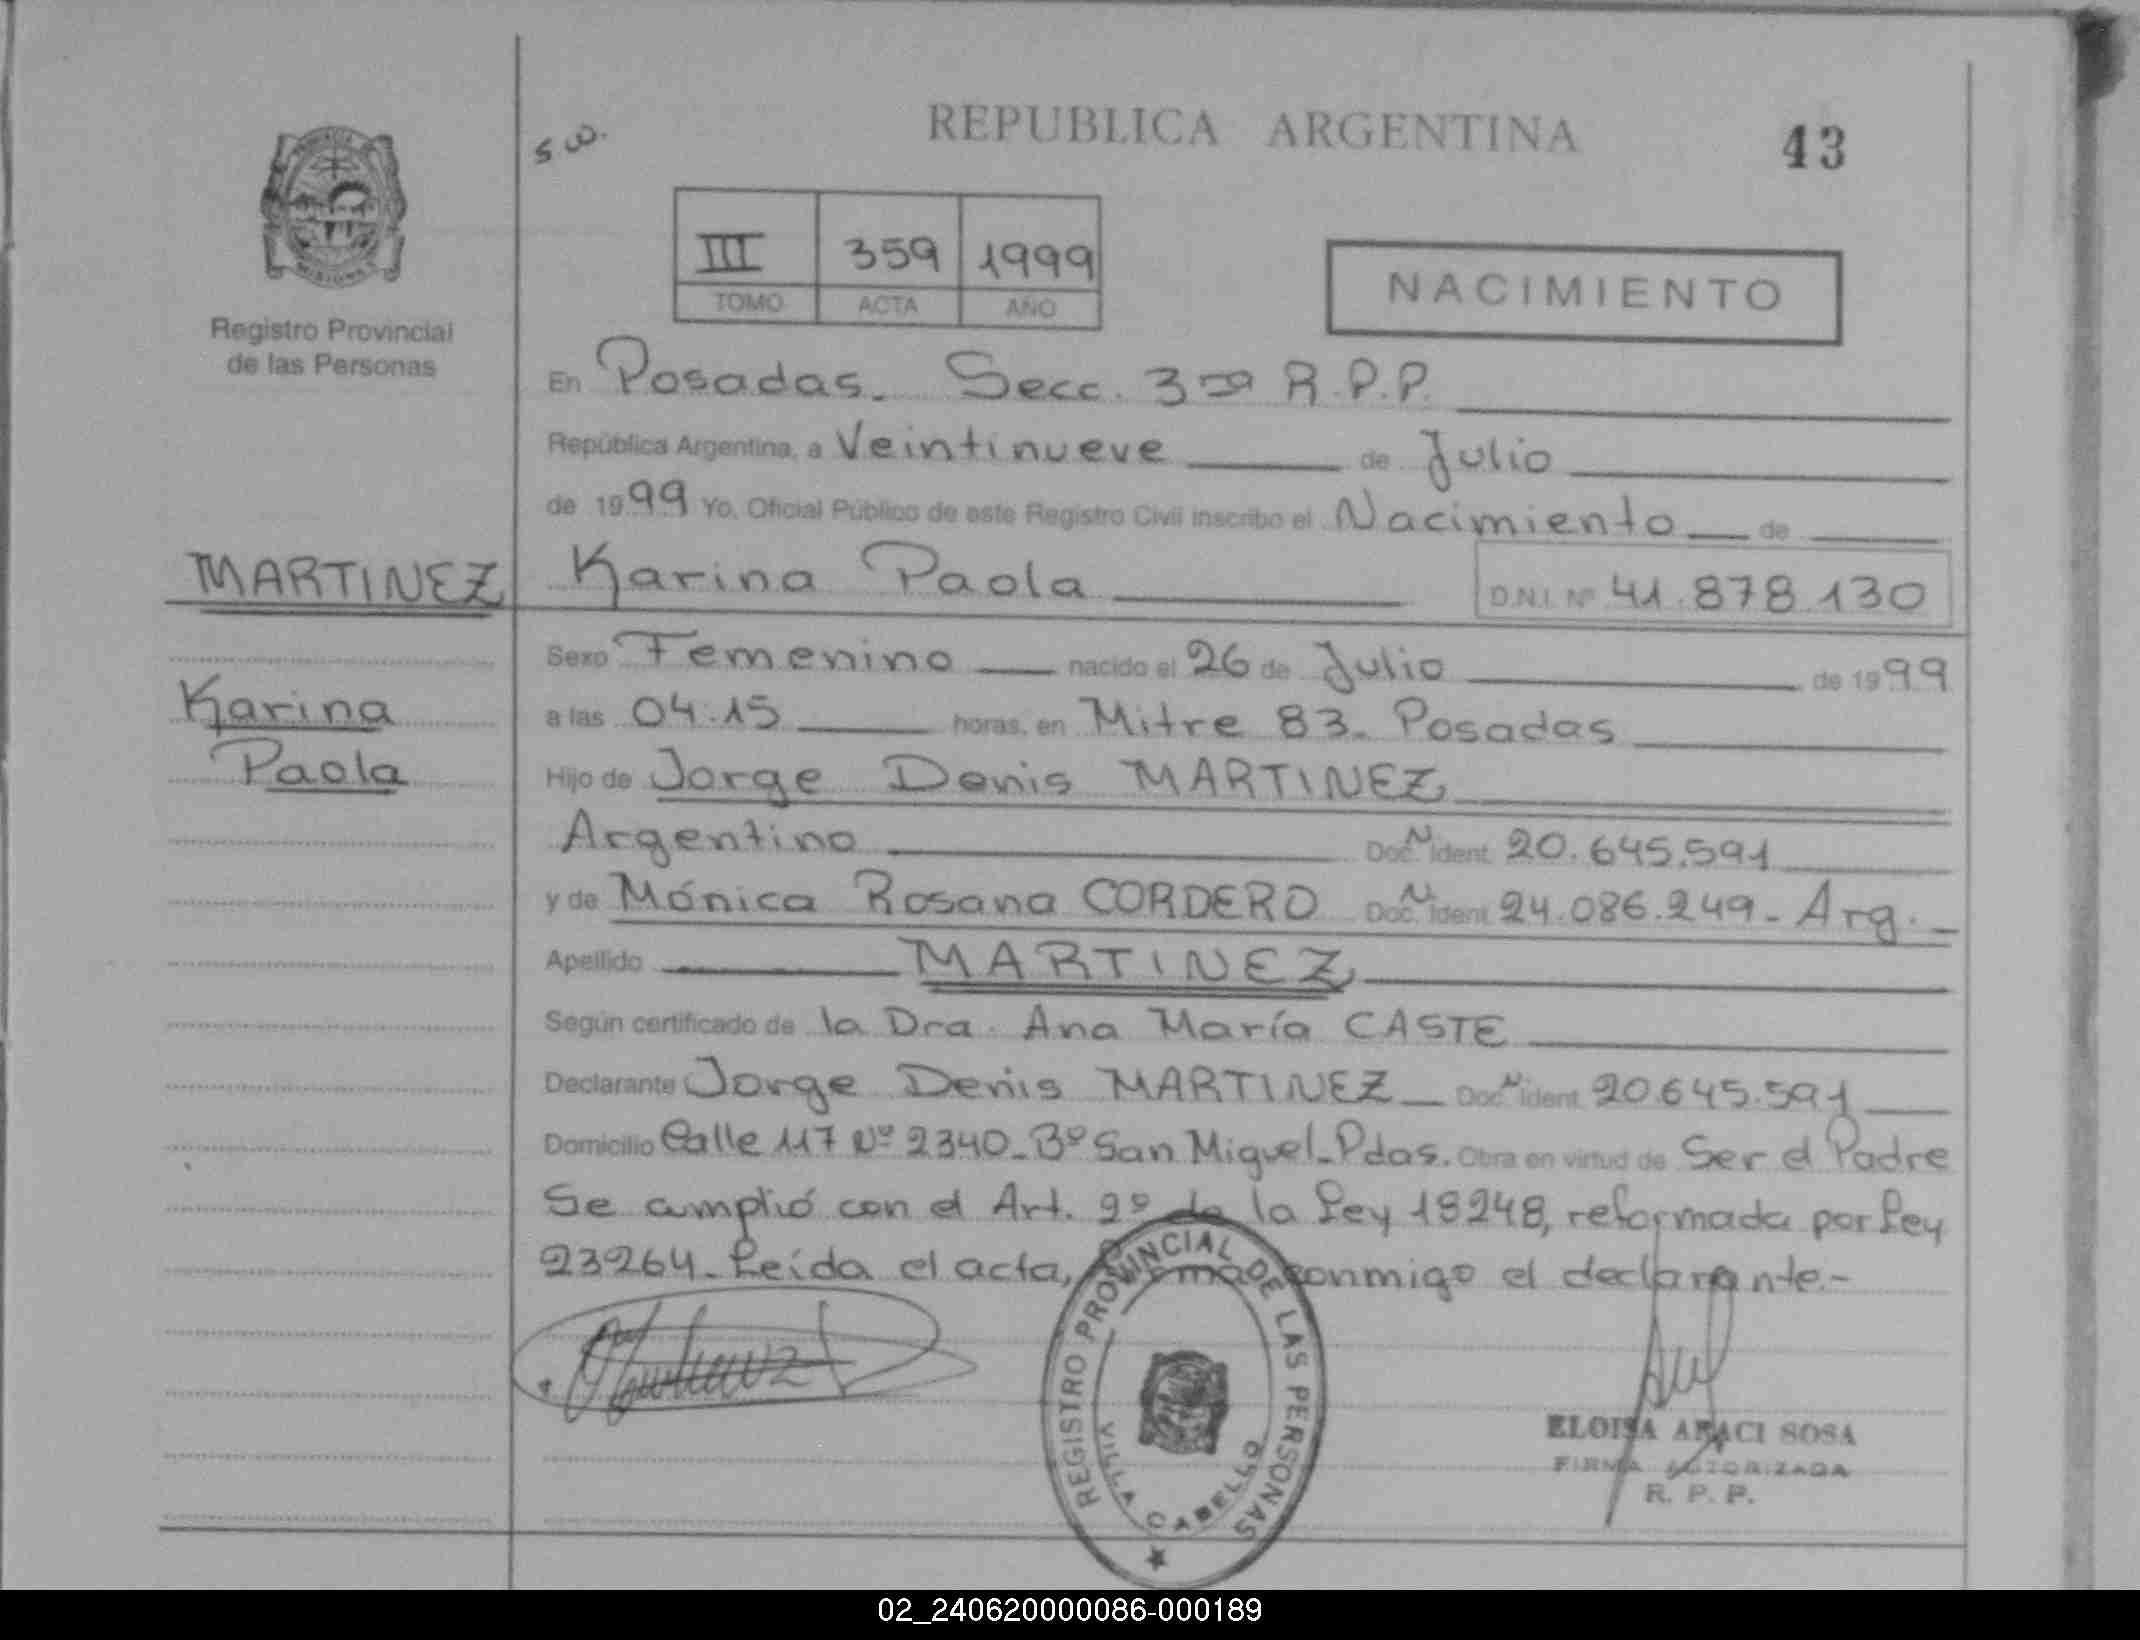 REPUBLICA ARGENTINA
43
S.W.
III 359 1999
TOMO ACTA AÑO
NACIMIENTO
MISIONES
Registro Provincial
de las Personas
En Posadas. Secc. 3ra R.P.P.
República Argentina, a Veintinueve de Julio
de 1999 Yo, Oficial Público de este Registro Civil inscribo el Nacimiento de
MARTINEZ Karina Paola D.N.I. Nº 41.878.130
Sexo Femenino nacido el 26 de Julio de 1999
Karina
a las 04.15 horas, en Mitre 83. Posadas
Paola
Hijo de Jorge Denis MARTINEZ
Argentino Doc. N. Ident. 20.645.591
y de Mónica Rosana CORDERO Doc. N. Ident 24.086.249- Arg.
Apellido MARTINEZ
Según certificado de la Dra. Ana María CASTE
Declarante Jorge Denis MARTINEZ Doc. N. Ident. 20.645.591
Domicilio Calle 117 Nº 2340- Bº San Miguel-Pdas. Obra en virtud de Ser el Padre
Se cumplió con el Art. 2º de la Ley 18248, reformada por Ley
23264. Leída el acta, firma conmigo el declarante.-
REGISTRO PROVINCIAL DE LAS PERSONAS
VILLA CABELLO
ELOISA ARACI SOSA
FIRMA AUTORIZADA
R. P. P.
02_240620000086-000189